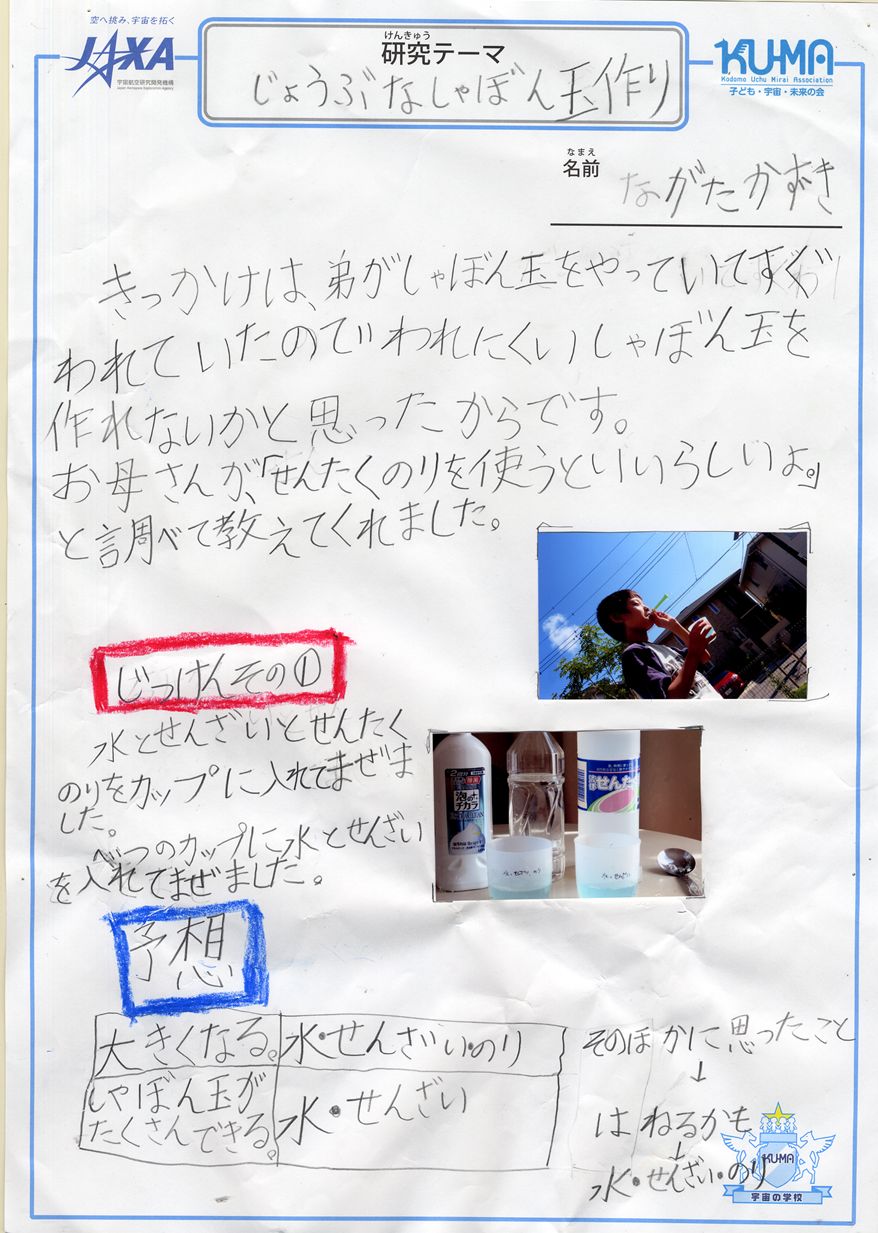 空へ挑み、宇宙を拓く
JAXA
宇宙航空研究開発機構
Japan Aerospace Exploration Agency
けんきゅう
研究テーマ
じょうぶなしゃぼん玉作り
KU-MA
Kodomo Uchu Mirai Association
子ども・宇宙・未来の会
なまえ
名前
ながたかずき
きっかけは、弟がしゃぼん玉をやっていてすぐ
われていたのでわれにくいしゃぼん玉を
作れないかと思ったからです。
お母さんが、「せんたくのりを使うといいらしいよ。」
と言調べて教えてくれました。
じっけんその①
水とせんざいとせんたく
のりをカップに入れてまぜま
した。
べつのカップに水とせんざい
を入れてまぜました。
せんた
水、せんざい、のり
水、せんざい
予想
大きくなる。 水・せんざい・のり
しゃぼん玉が
たくさんできる。 水・せんざい
そのほかに思ったこと
↓
はねるかも
↓
水・せんざい・のり
KU-MA
宇宙の学校